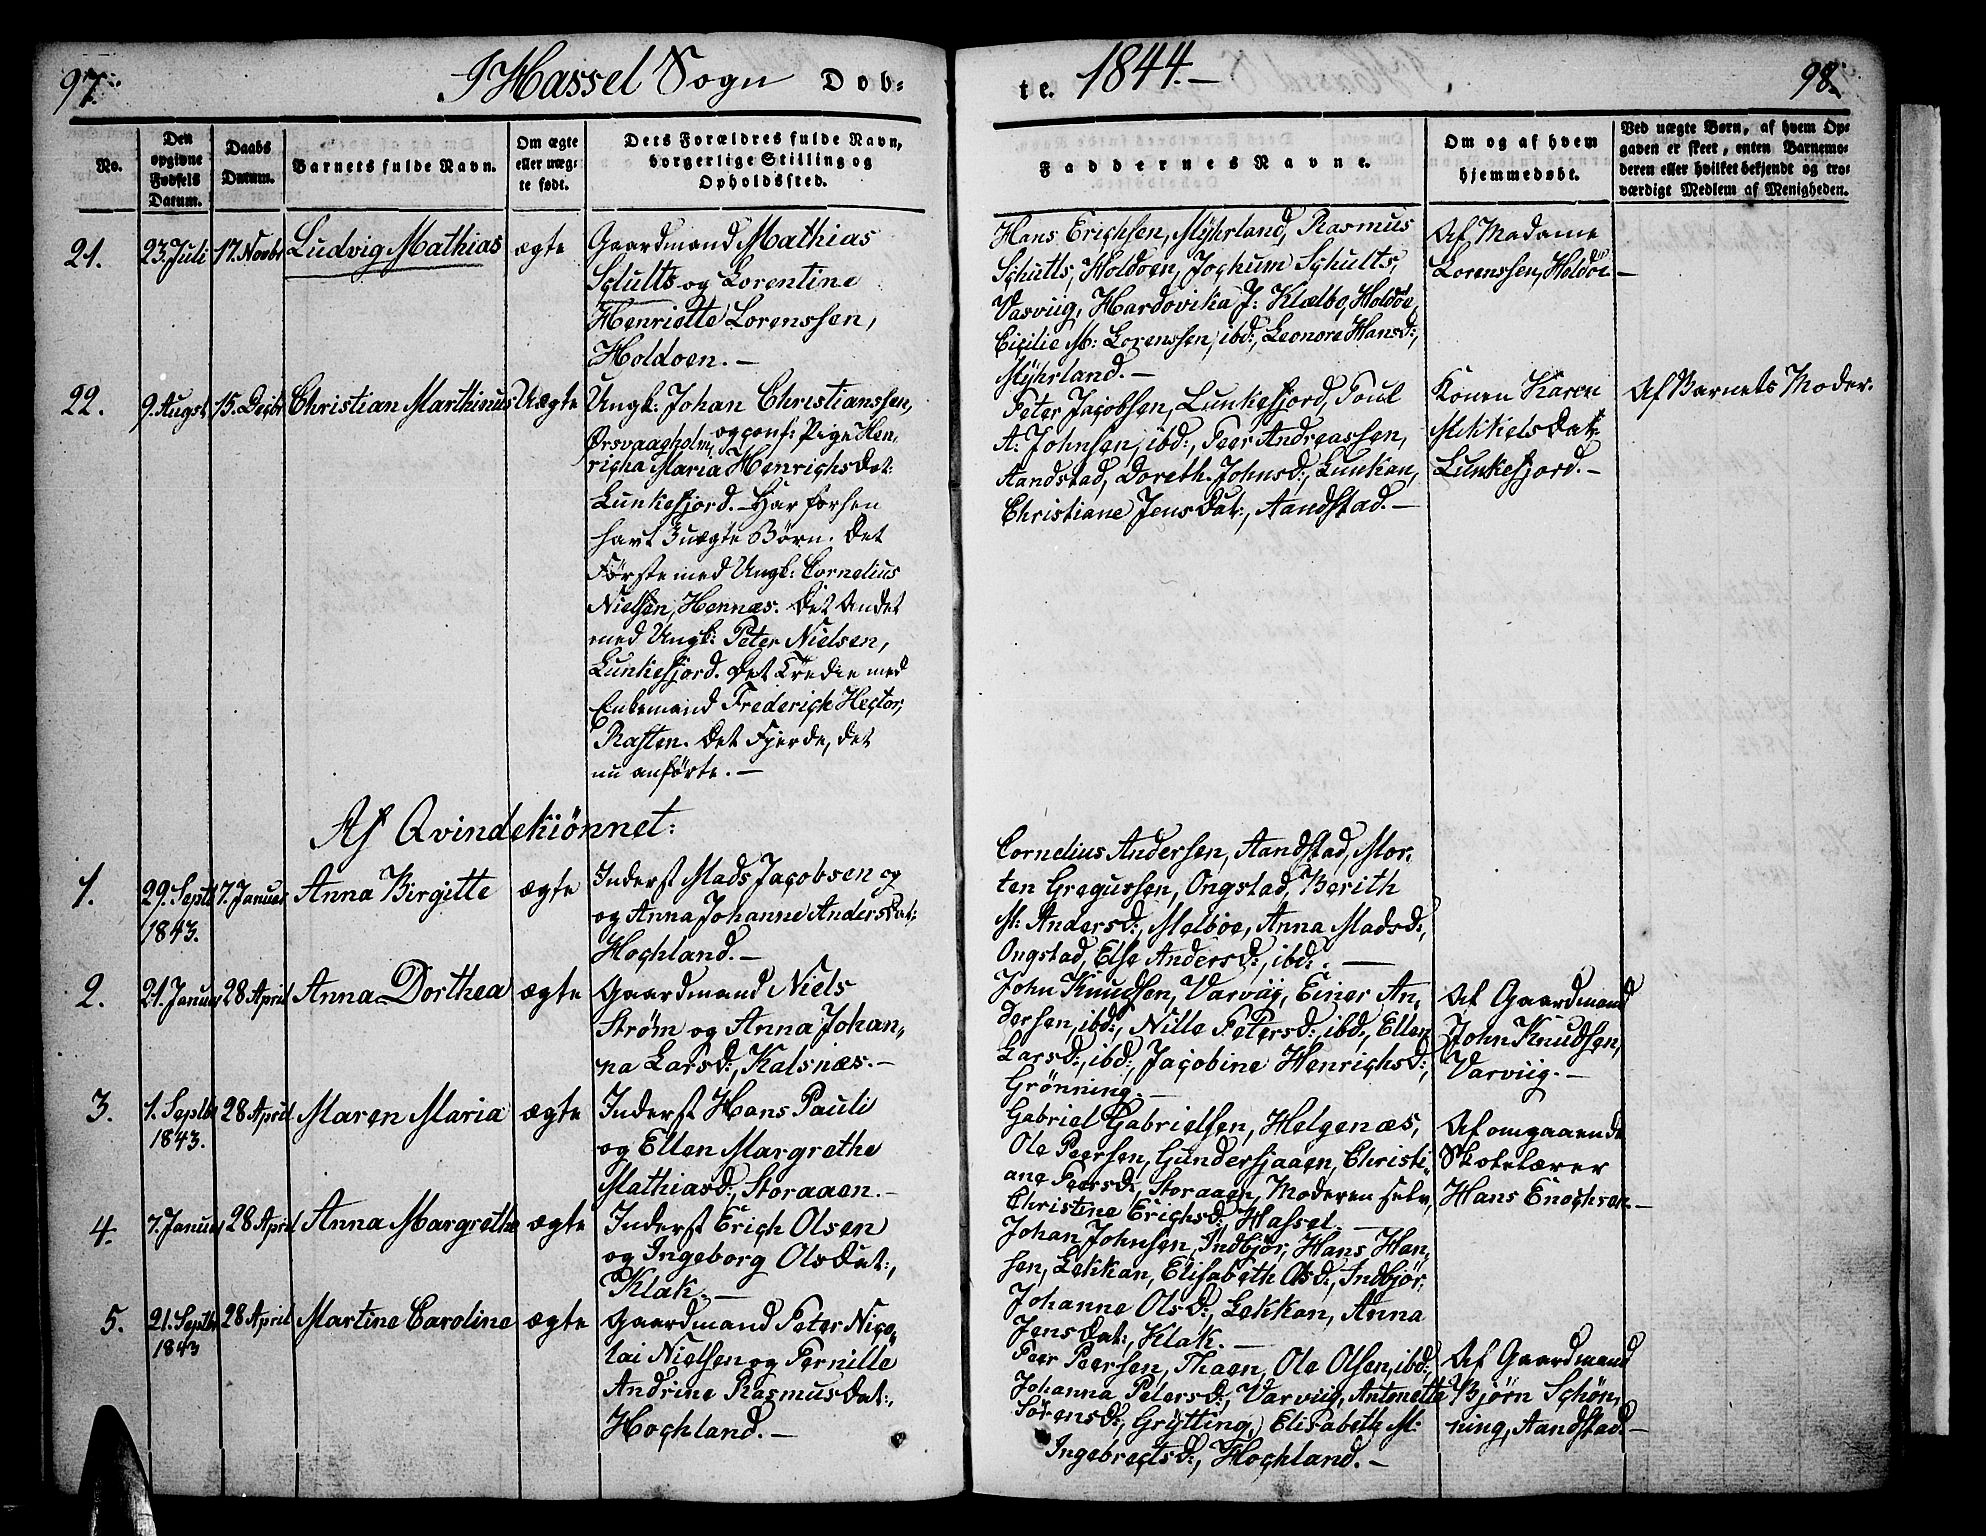 97.
I Hassel Sogn Dob-
te. 1844.-
98.
No.
Den
opgivne
Fødsels
Datum.
Daabs
Datum.
Barnets fulde Navn.
Om ægte
eller uæg-
te født.
Dets Forældres fulde Navn,
borgerlige Stilling og
Opholdssted.
Faddernes Navne.
Om og af hvem
hjemmedøbt.
Ved uægte Børn, af hvem Op-
gaven er skeet, enten Barnemo-
deren eller hvilket bekjendt og tro-
værdigt Medlem af Menigheden.
21.
23. Juli
17. Novbr
Ludvig Mathias
ægte
Gaardmand Mathias
Schults og Lorentine
Henriette Lorenssen,
Holdøen.-
Hans Erichsen, Myhrland, Rasmus
Schults, Holdöen, Jochum Schults,
Varviig, Hardovika J: Klælbo, Holdöe,
Cicilie M: Lorenssen, ibd:, Leonore Hansd:,
Myhrland.-
Af Madame
Lorenssen, Holdöe-
22.
9. Augst
15. Decbr
Christian Marthinus
Uægte
Ungk: Johan Christianssen,
Ørsvaagholm, og conf: Pige Hen-
richa Maria Henrichsdat:
Lunkefjord.- Har forhen
havt 3 uægte Børn. Det
Förste med Ungk: Cornelius
Nielsen, Hennæs. Det Andet
med Ungk: Peter Nielsen,
Lunkefjord. Det Tredie med
Enkemand Frederich Hector,
Raften. Det Fjerde, det
nu anförte.-
Peter Jacobsen, Lunkefjord, Poul
A: Johnsen, ibd:, Peer Andreassen,
Aandstad, Doreth. Johnsd:, Lunkan,
Christiane Jensdat:, Aandstad.-
Konen Karen
Mikkelsdat:
Lunkefjord.-
Af Barnets Moder.
Af Qvindekiønnet:
1.
29. Septbr
1843.
7. Januar
Anna Birgitte
ægte
Inderst Mads Jacobsen og
og Anna Johanne Andersdat:
Hochland.-
Cornelius Andersen, Aandstad, Mor-
ten Gregussen, Ongstad, Berith
M: Andersd:, Melböe, Anna Madsd:,
Ongstad, Else Andersd:, ibd:.-
2.
21. Januar
28 April
Anna Dorthea
ægte
Gaardmand Niels
Strøm og Anna Johan-
na Larsd:, Kalsnæs.-
John Knudsen, Varviig, Einer An-
dersen, ibd:, Nille Petersd:, ibd:, Ellen
Larsd:, ibd:, Jacobine Henrichsd:,
Grönning.-
Af Gaardmand
John Knudsen,
Varviig.-
3.
1. Septbr
1843.
28 April
Maren Maria
ægte
Inderst Hans Pauli
og Ellen Margrethe
Mathiasd:, Storaaen.-
Gabriel Gabrielsen, Helgenæs,
Ole Peersen, Gundersjaaen, Christi-
ane Peersd:, Storaaen, Moderen selv,
Christine Erichsd:, Hassel.-
Af omgaaende
Skolelærer
Hans Enochsen.-
4.
7. Januar
28 April
Anna Margrethe
ægte
Inderst Erich Olsen
og Ingeborg Olsdat:,
Klak.-
Johan Johnsen, Indbjör, Hans Han-
sen, Lekkan, Elisabeth Olsd:, Indbjör,
Johanne Olsd:, Lekkan, Anna
Jensdat:, Klak.-
5.
21. Septbr
1843
28 April
Martine Caroline
ægte
Gaardmand Peter Nico-
lai Nielsen og Pernille
Andrine Rasmusdat:,
Hochland.-
Peer Peersen, Thaen, Ole Olsen, ibd:,
Johanna Petersd:, Varviig, Antonette
Sörensd:, Grytting, Elisabeth M:
Ingebrectsd:, Hochland.-
Af Gaardmand
Bjørn Schön-
ning, Aandstad.-